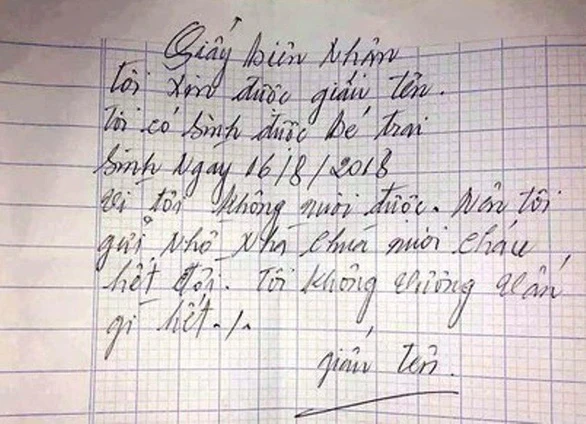 Giấy biên nhận
Tôi xin được giấu tên.
Tôi có sinh được bé trai
Sinh ngày 16/8/2018
Vì tôi không nuôi được. Nên tôi
gửi nhờ nhà chùa nuôi cháu
hết đời. Tôi không vướng vấn
gì hết./.
giấu tên.